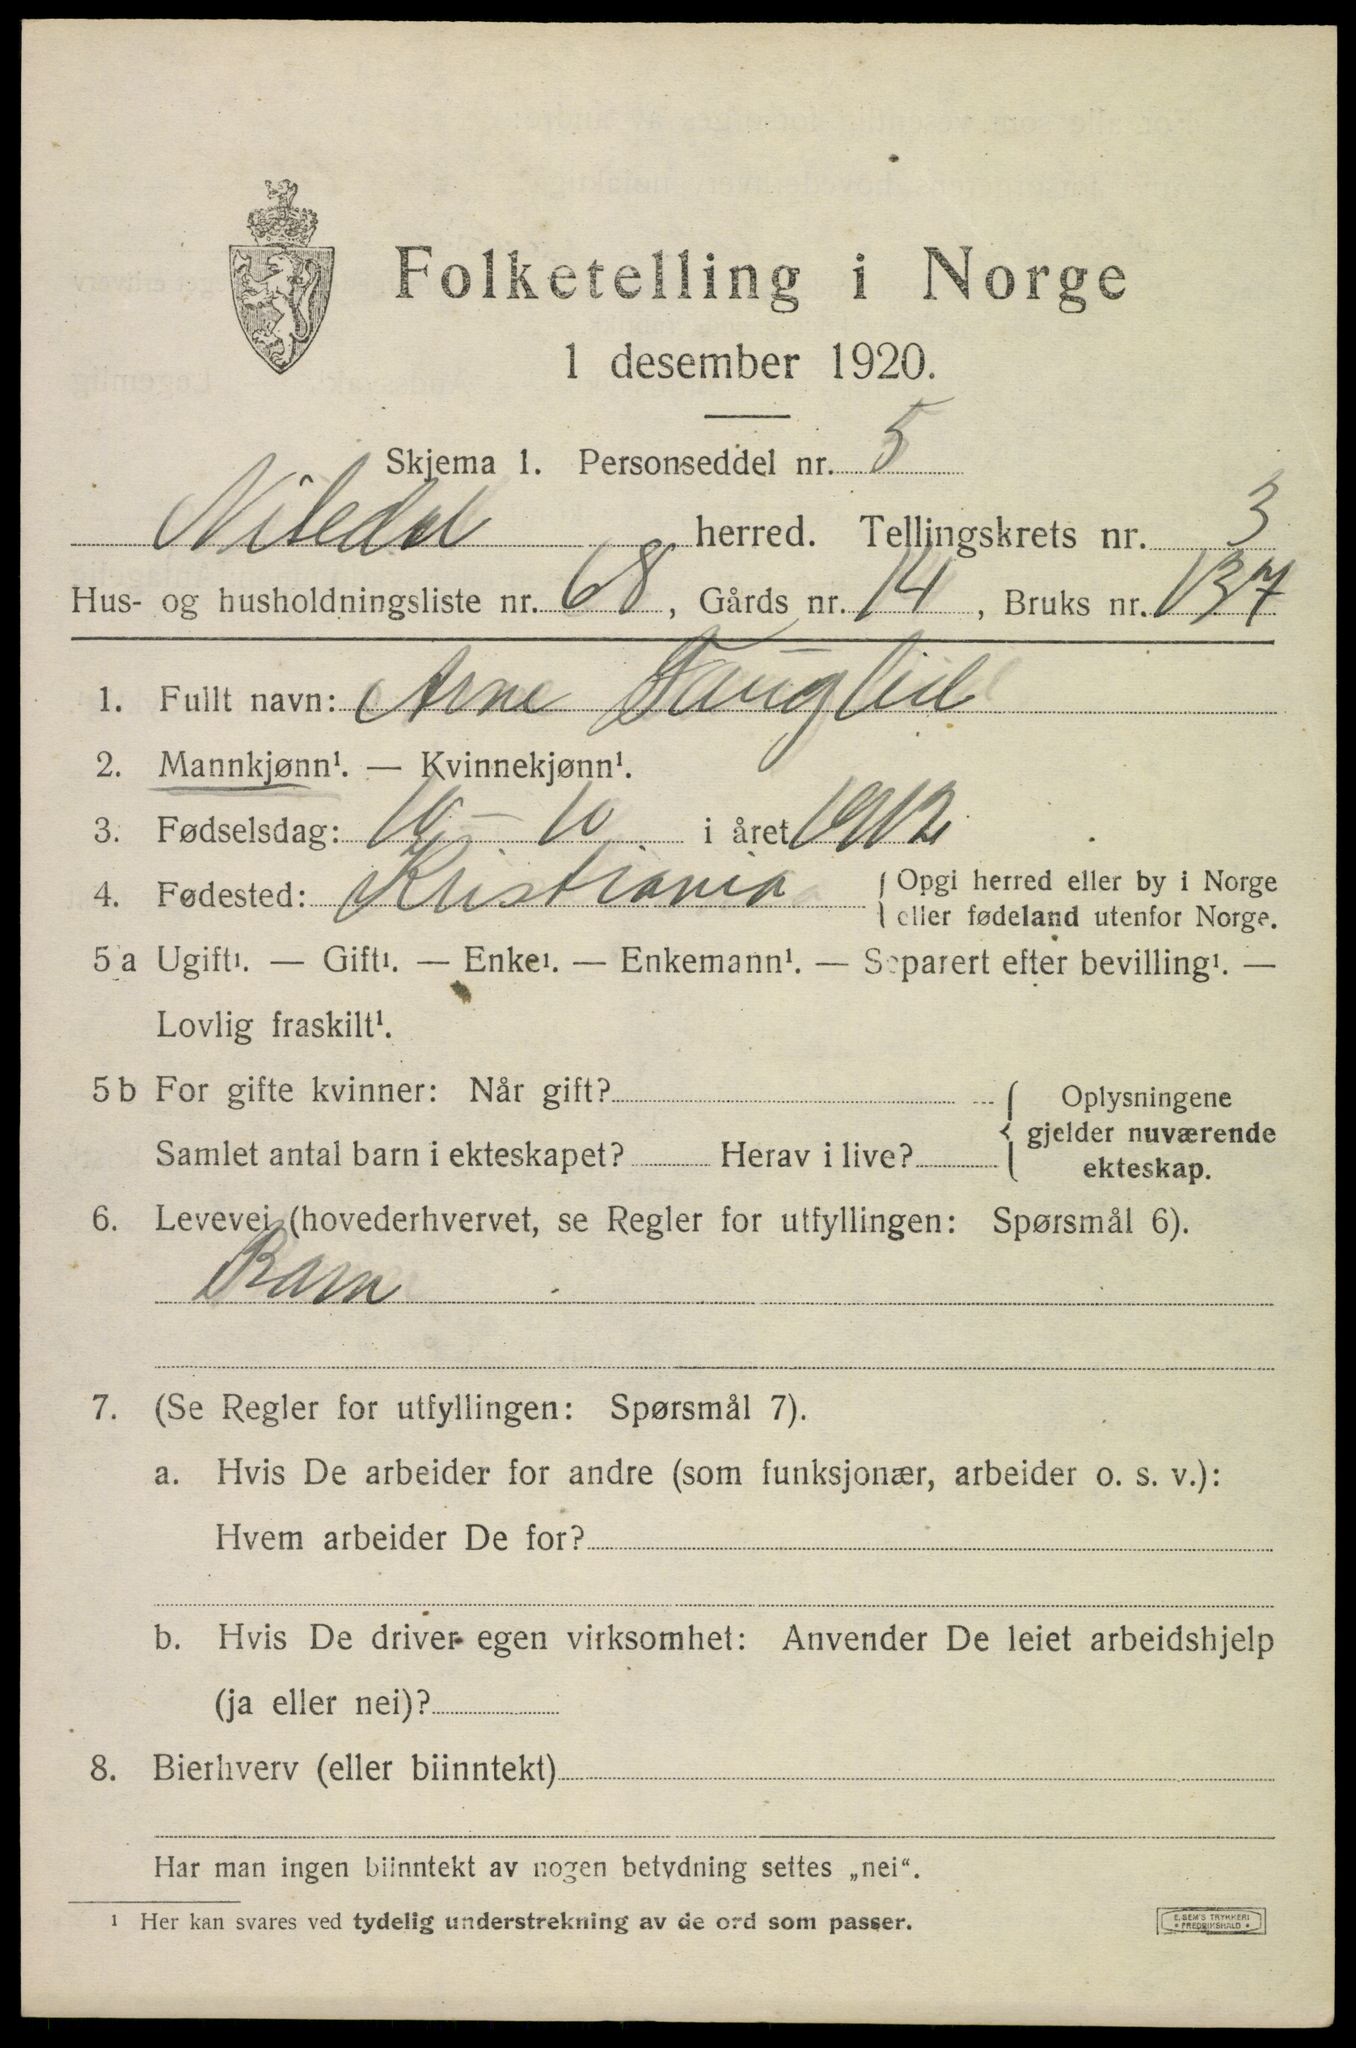 Folketelling i Norge
1 desember 1920.
Skjema 1. Personseddel nr. 5
Nitedal herred. Tellingskrets nr. 3
Hus- og husholdningsliste nr. 68, Gårds nr. 14, Bruks nr. 137
1. Fullt navn: Arne
2. Mannkjønn¹. — Kvinnekjønn¹.
3. Fødselsdag: 10 - 10 i året 1912
4. Fødested: Kristiania { Opgi herred eller by i Norge
eller fødeland utenfor Norge.
5 a Ugift¹. — Gift¹. — Enke¹. — Enkemann¹. — Separert efter bevilling¹. —
Lovlig fraskilt¹.
5 b For gifte kvinner: Når gift? { Oplysningene
gjelder nuværende
Samlet antal barn i ekteskapet? Herav i live?
ekteskap.
6. Levevei (hovederhvervet, se Regler for utfyllingen: Spørsmål 6).
Barn
7. (Se Regler for utfyllingen: Spørsmål 7).
a. Hvis De arbeider for andre (som funksjonær, arbeider o. s. v.):
Hvem arbeider De for?
b. Hvis De driver egen virksomhet: Anvender De leiet arbeidshjelp
(ja eller nei)?
8. Bierhverv (eller biinntekt)
Har man ingen biinntekt av nogen betydning settes „nei“.
¹ Her kan svares ved tydelig understrekning av de ord som passer.
E. SEM'S TRYKKERI
• FREDRIKSHALD •